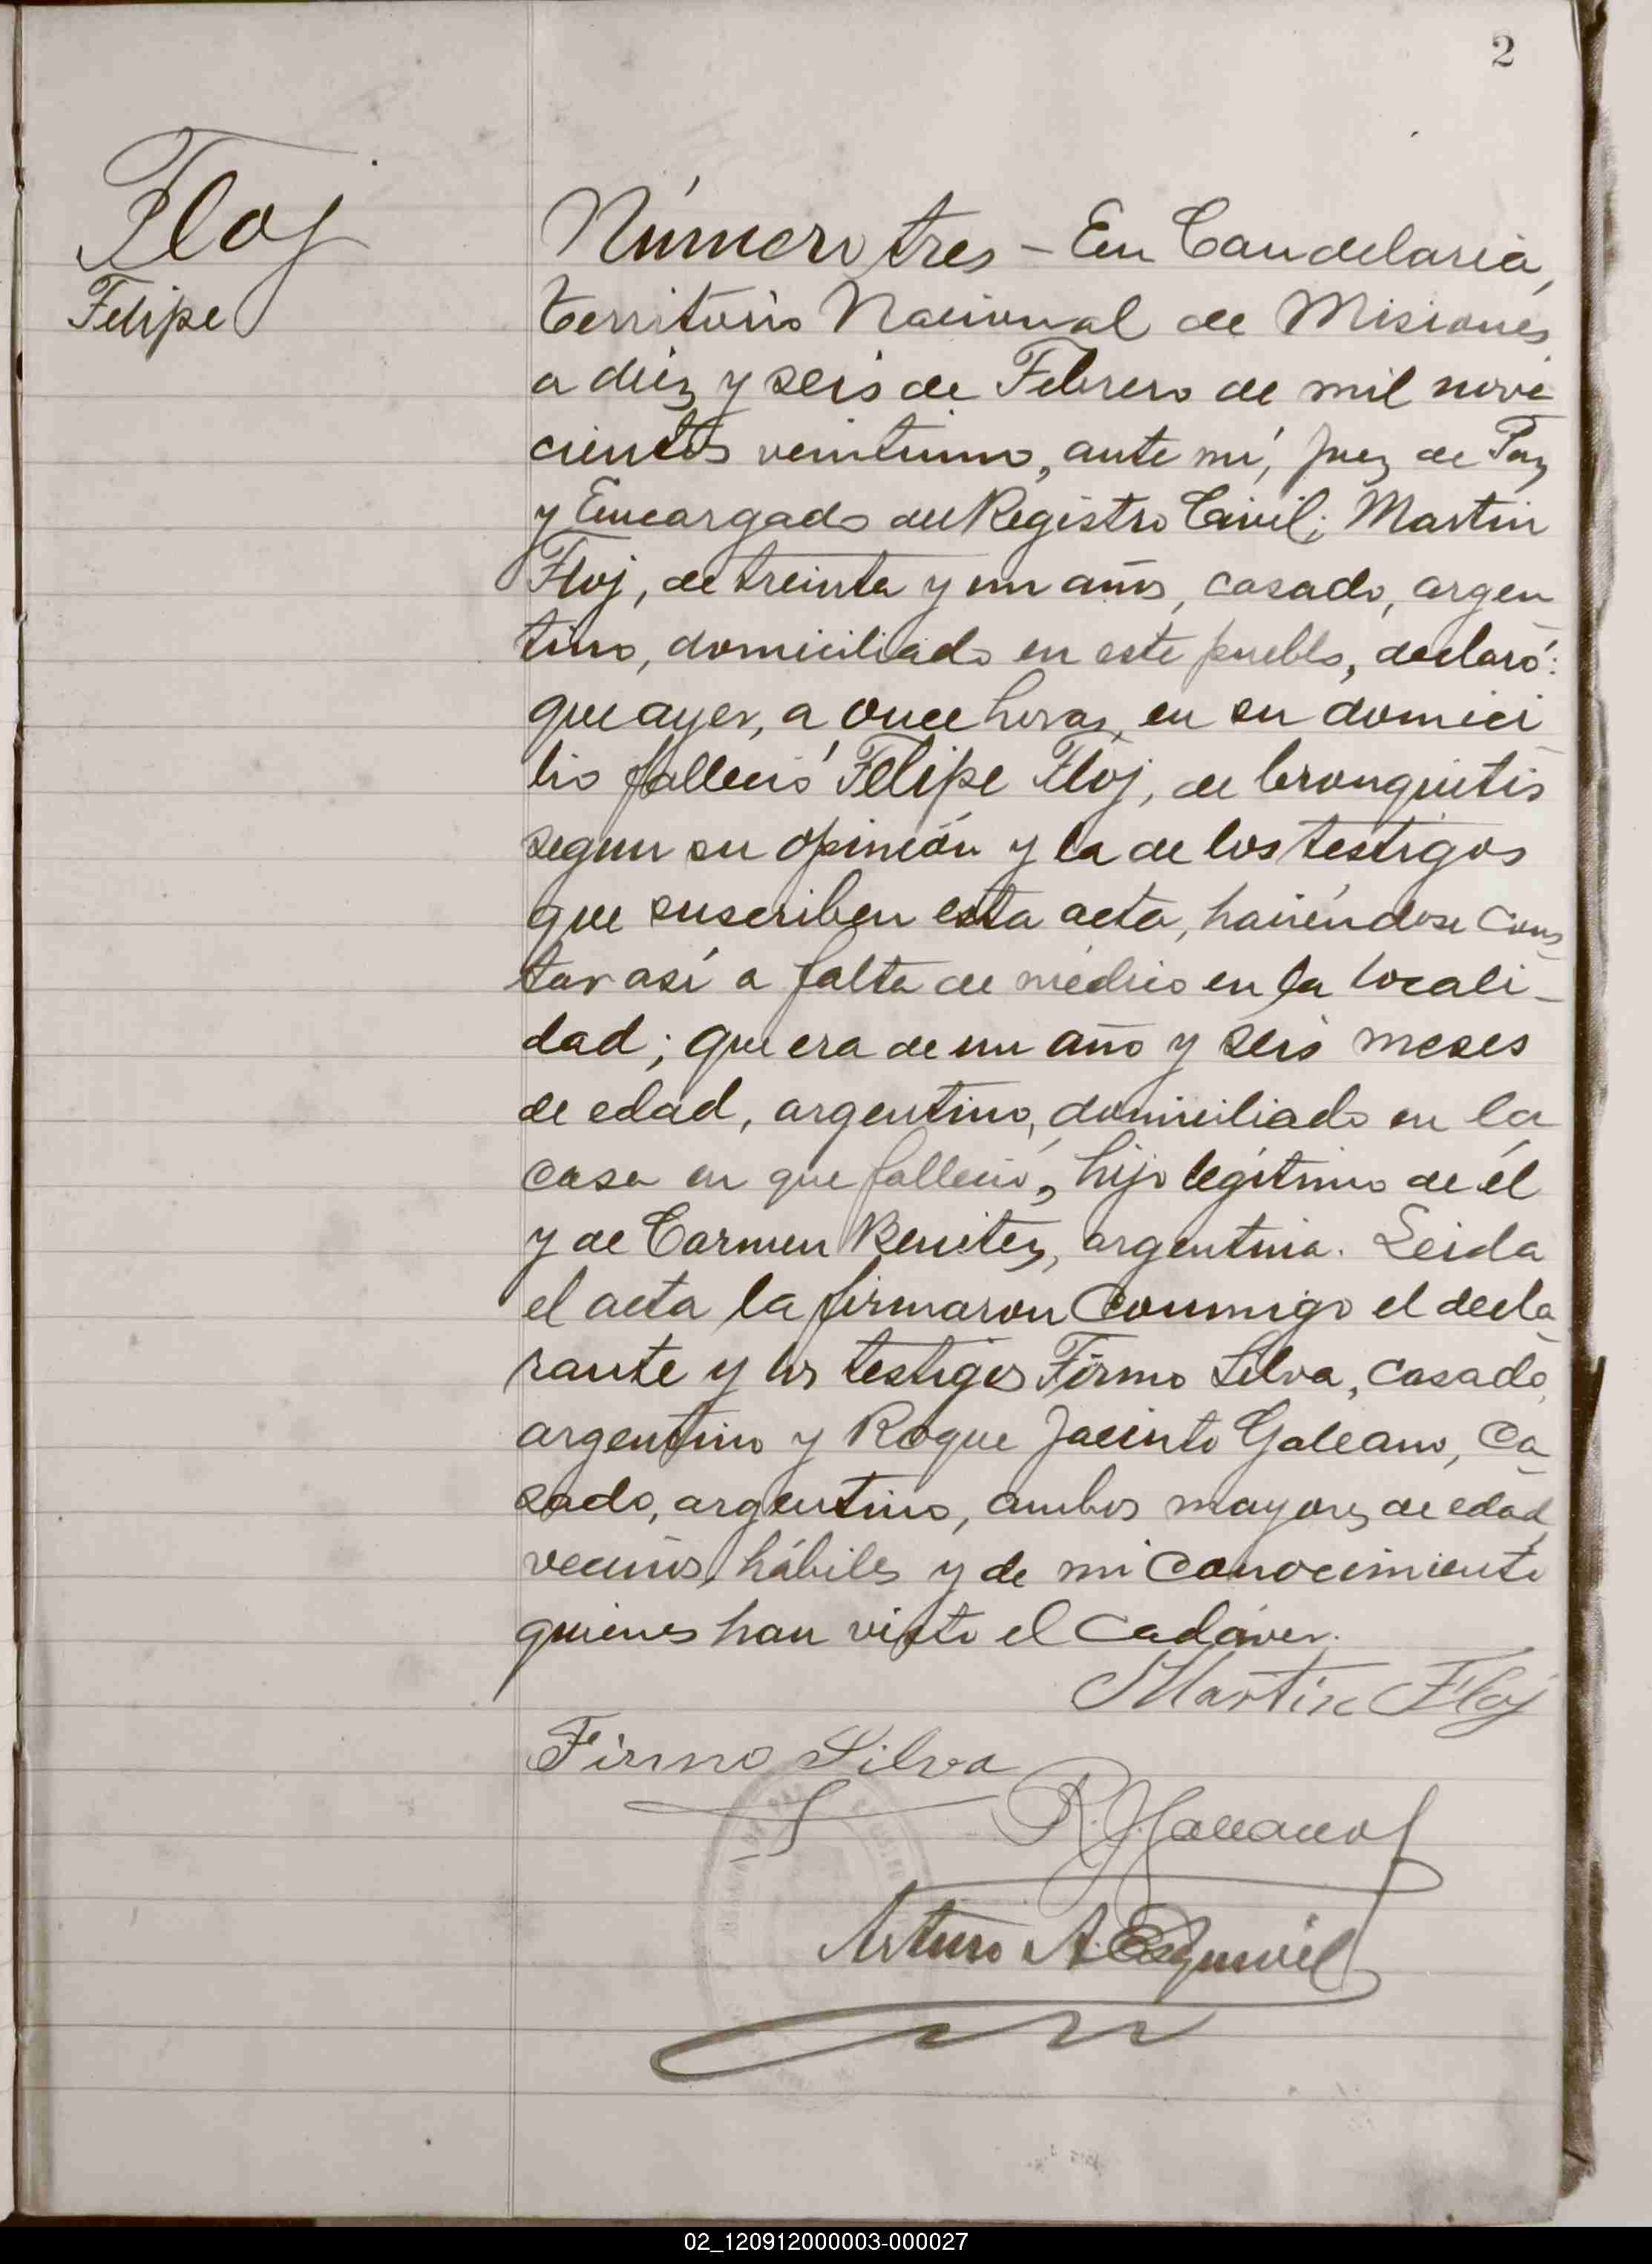 2
Floj
Felipe
Número tres - En Candelaria,
Territorio Nacional de Misiones,
a diez y seis de Febrero de mil nove
cientos veintiuno, ante mí, Juez de Paz
y Encargado del Registro Civil; Martin
Floj, de treinta y un años, casado, argen
tino, domiciliado en este pueblo, declaró:
que ayer, a once horas, en su domici
lio falleció Felipe Floj, de bronquitis
segun su opinión y la de los testigos
que suscriben esta acta, haciéndose cons
tar así a falta de médico en la locali-
dad; que era de un año y seis meses
de edad, argentino, domiciliado en la
casa en que falleció, hijo legítimo de él
y de Carmen Benitez, argentina. Leida
el acta la firmaron conmigo el decla
rante y los testigos Firmo Silva, casado,
argentino y Roque Jacinto Galeano, ca
sado, argentino, ambos mayores de edad,
vecinos, hábiles y de mi conocimiento
quienes han visto el cadáver.
Martin Floj
Firmo Silva
R. J. Galeano
Arturo A. Esquivel
02_120912000003-000027